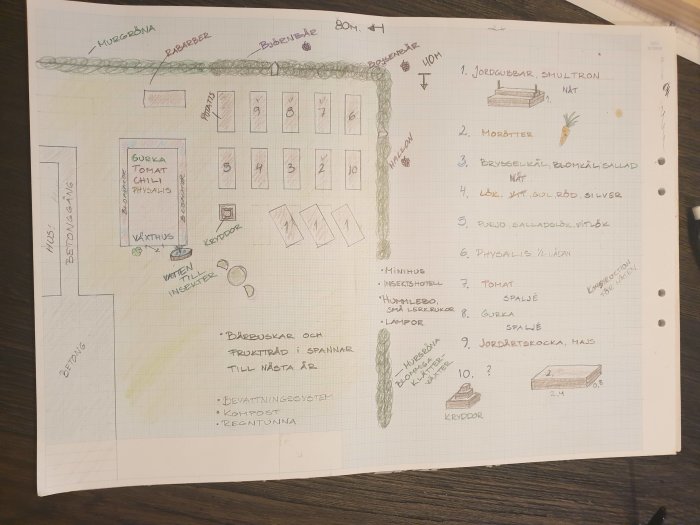 MURGRÖNA
RABARBER
BJÖRNBÄR
80M.
BOYSENBÄR
40M
HALLON
POTATIS
9
8
7
6
5
4
3
2
10
1
1
1
GURKA
TOMAT
CHILI
PHYSALIS
BLOMMOR
BLOMMOR
VÄXTHUS
KRYDDOR
VATTEN
TILL
INSEKTER
HUS
BETONGGÅNG
BETONG
• BÄRBUSKAR OCH
FRUKTTRÄD I SPANNAR
TILL NÄSTA ÅR
• BEVATTNINGSSYSTEM
• KOMPOST
• REGNTUNNA
• MINIHUS
• INSEKTSHOTELL
• HUMMLEBO,
SMÅ LERKRUKOR
• LAMPOR
• MURGRÖNA
BLOMMIGA
KLÄTTER-
VÄXTER
1. JORDGUBBAR, SMULTRON
NÄT
2. MORÖTTER
3. BRYSSELKÅL, BLOMKÅL, SALLAD
NÄT
4. LÖK, GUL, RÖD, SILVER
5. PURJO, SALLADSLÖK, VITLÖK
6. PHYSALIS 1/2 LÅDAN
7. TOMAT
SPALJÉ
8. GURKA
SPALJÉ
9. JORDÄRTSKOCKA, MAJS
10. ?
KRYDDOR
2.4
0,8